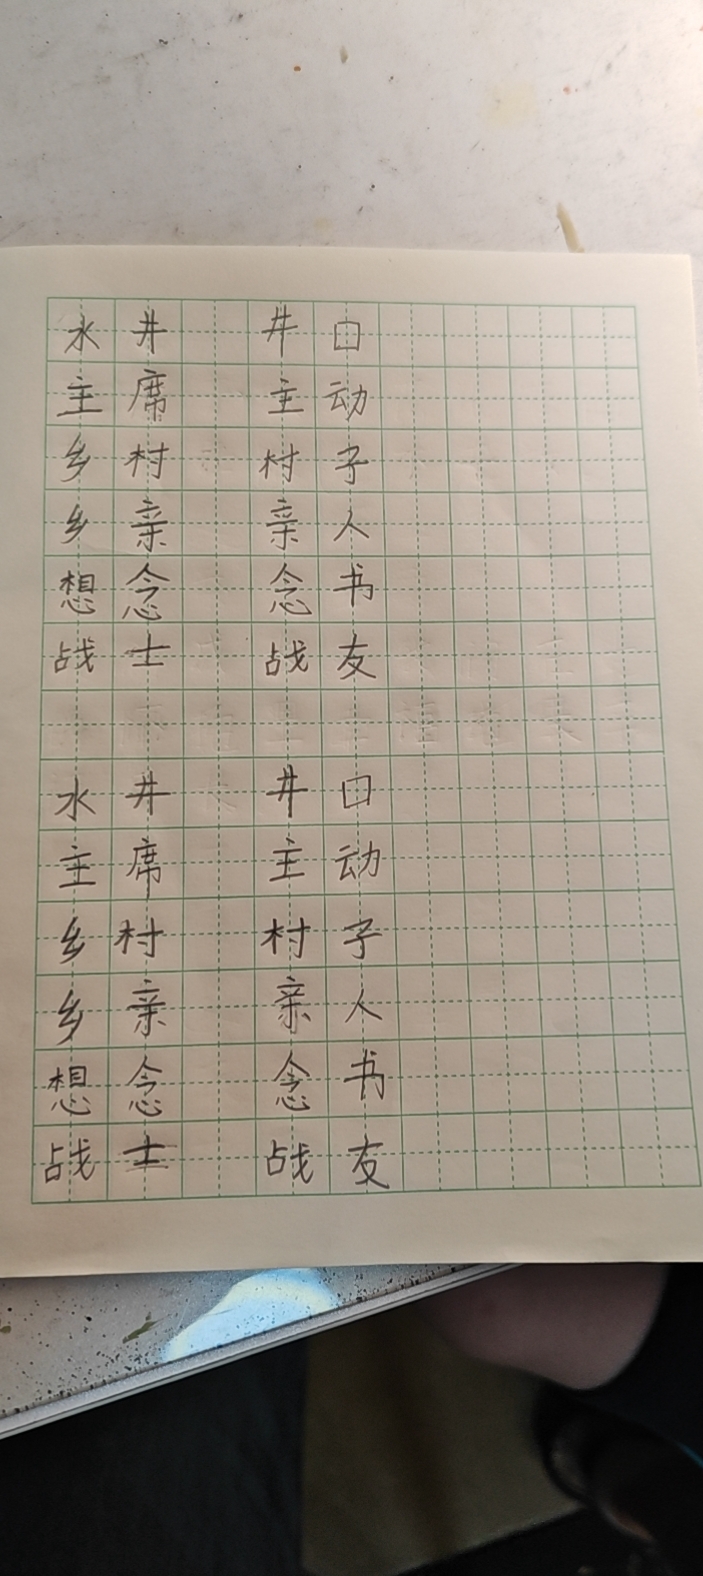 水井 井口
主席 主动
乡村 村子
乡亲 亲人
想念 念书
战士 战友
水井 井口
主席 主动
乡村 村子
乡亲 亲人
想念 念书
战士 战友